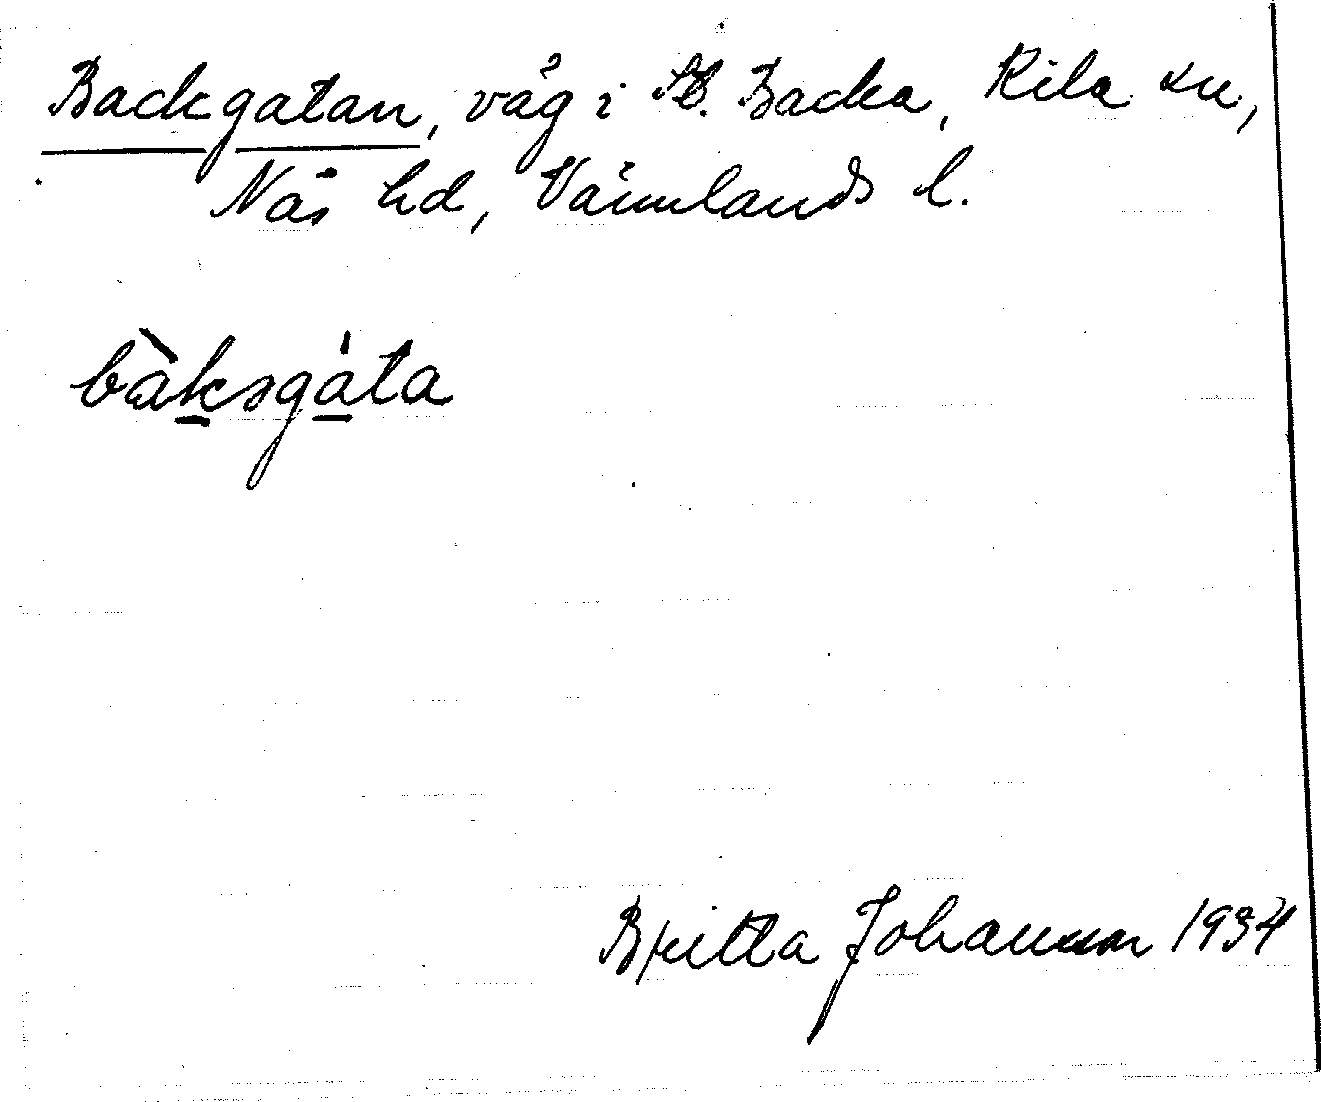 Backgatan, väg i St. Backa, Kila sn,
Näs hd, Värmlands l.
bàksgáta
Britta Johansson 1934